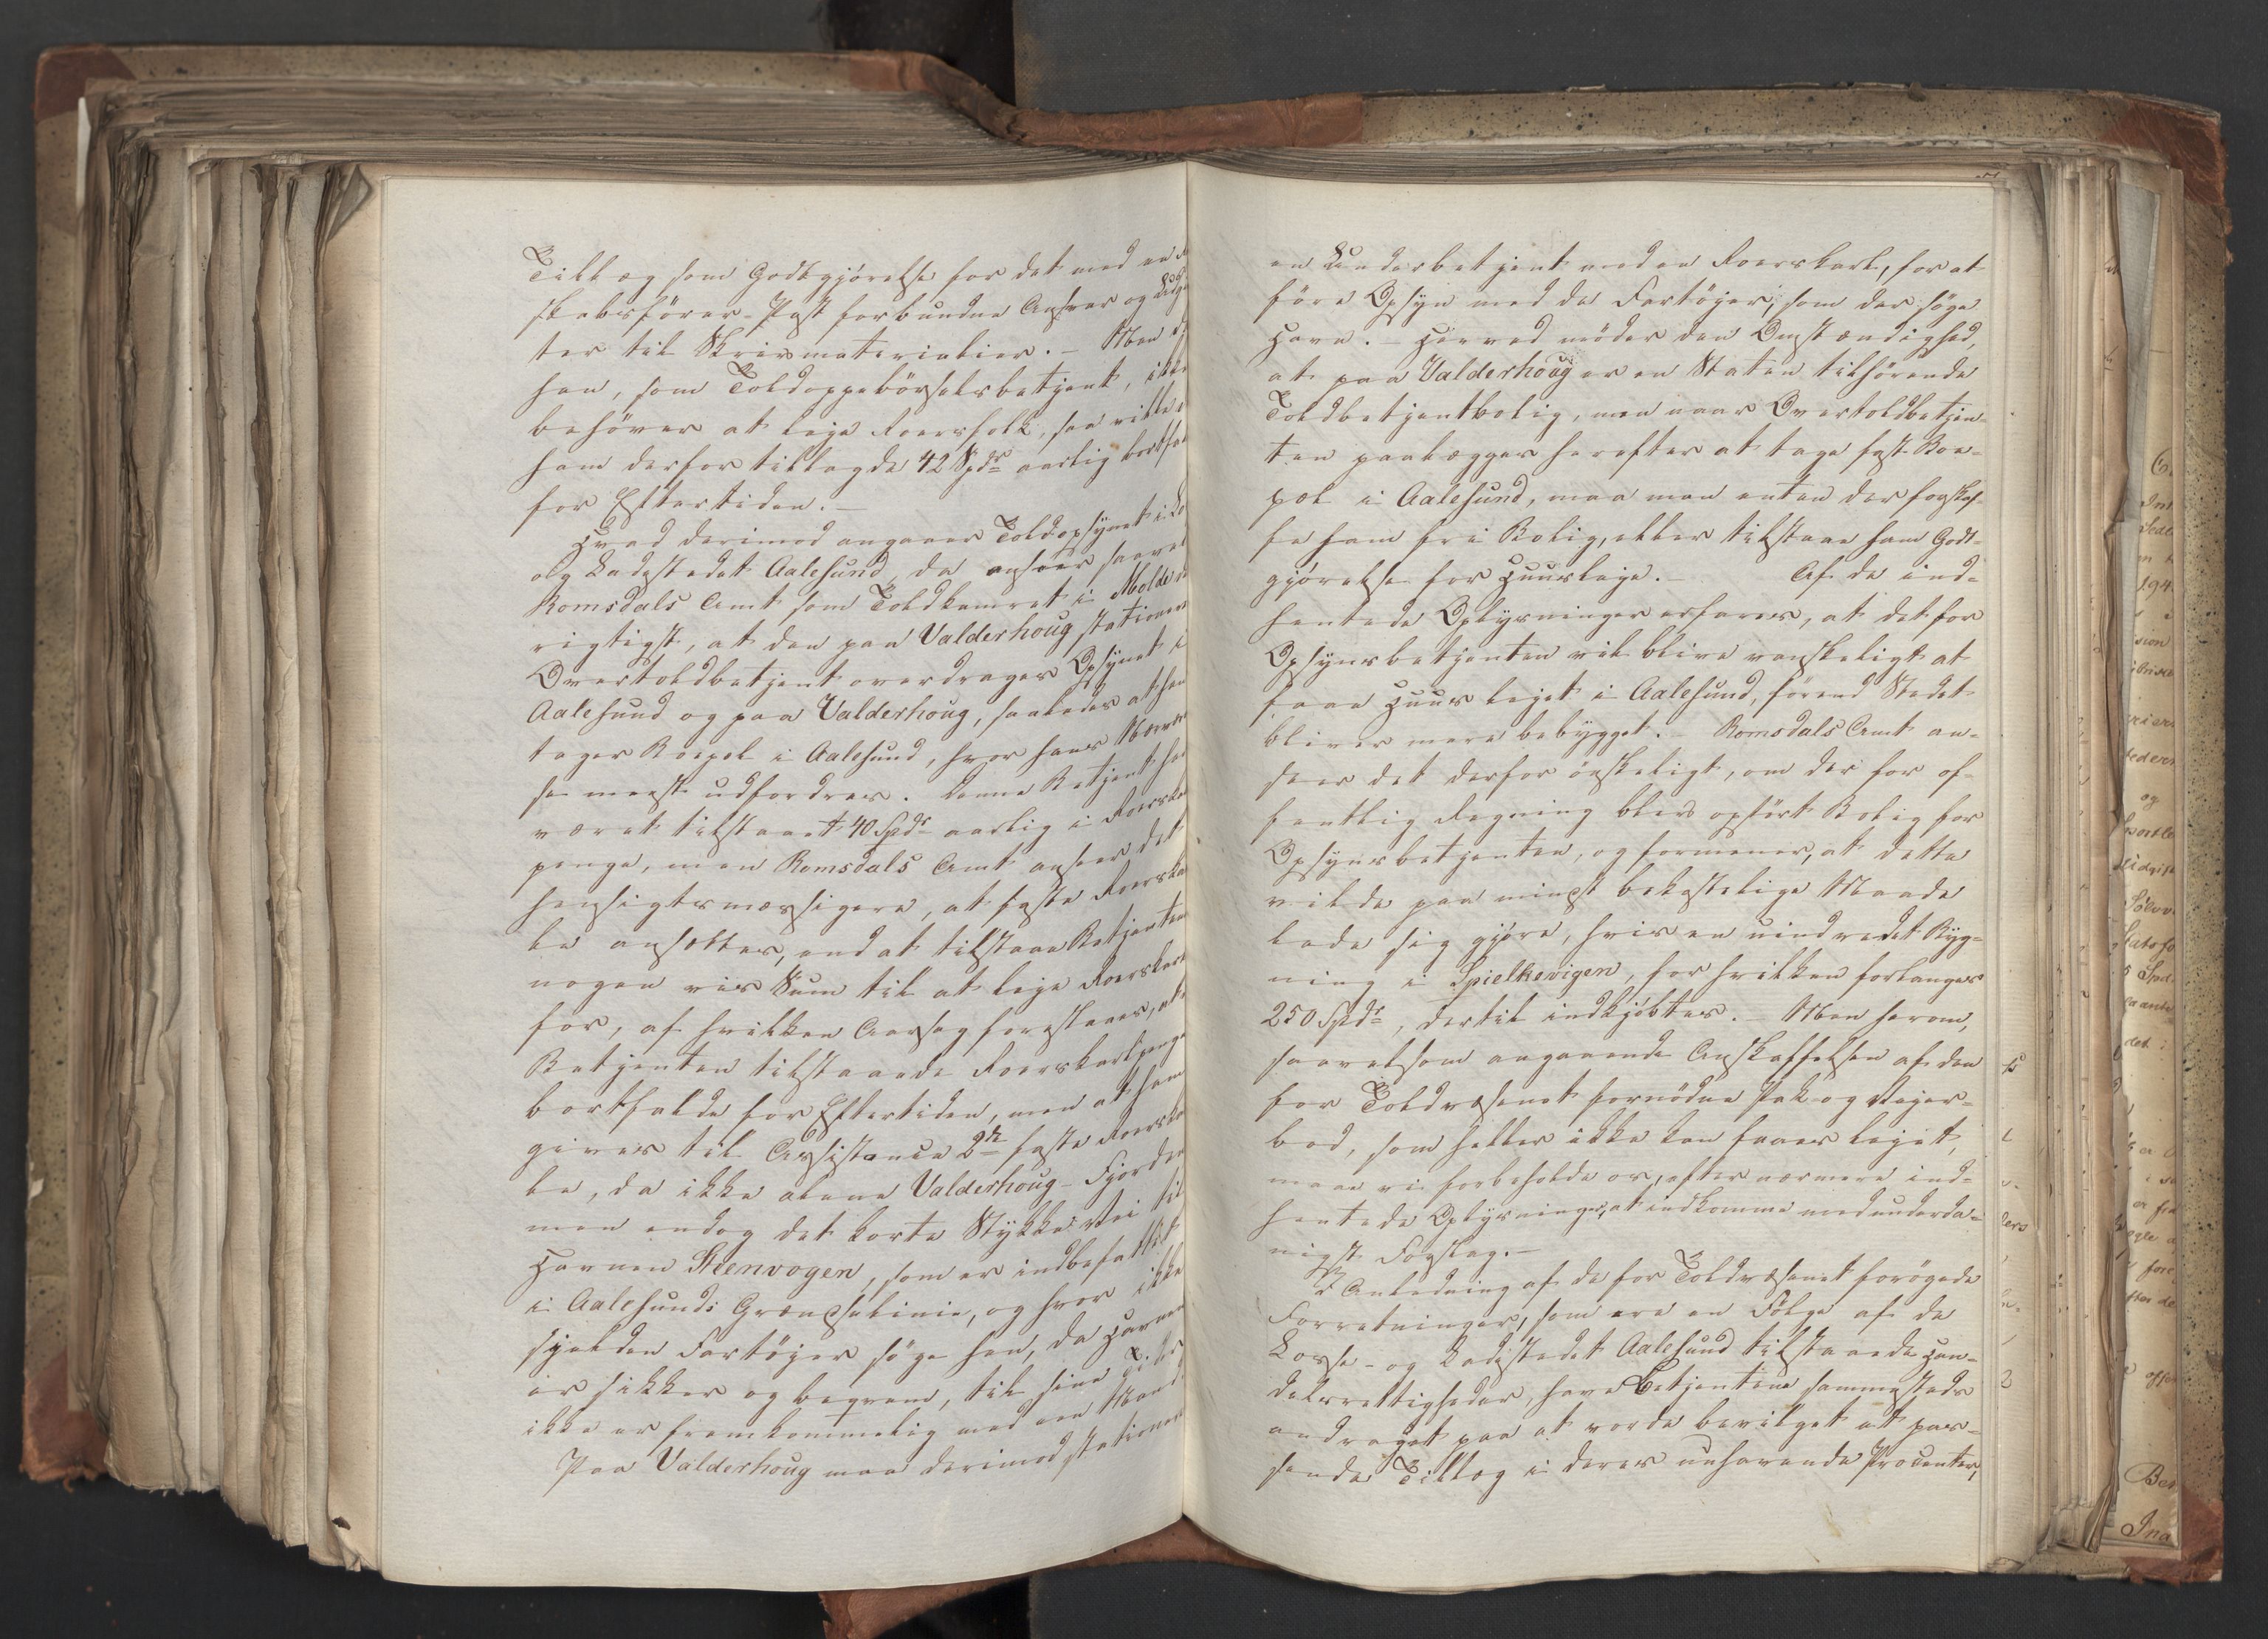 Tillæg som Godtgjörelse for det med en
skabsförer-Post forbundne Ansvar og Udgif
ter til Skrivmaterialier. – Men d
han, som Toldoppebörselsbetjent, ikke
behöver at leje Roersfolk, saa vilde
ham derfor tillagde 42 Spdr aarlig bortfal
for Eftertiden. –
Hvad derimod angaaer Toldopsynet i Lo
og Ladestedet Aalesund, da anseer saavel
Romsdals Amt som Toldkamret i Molde de
rigtigst, at den paa Valderhoug stationere
Overtoldbetjent overdrages Opsynet i
Aalesund og paa Valderhoug, saaledes at han
tager Boepæl i Aalesund, hvor hans Nærvæ
se meest udfordres. Denne Betjent har
været tilstaaet 40 Spdr aarlig i Roerskarl
penge, men Romsdals Amt anseer det
hensigtsmæssigere, at faste Roerskar
le ansættes, end at tilstaae Betjenten
nogen vis Sum til at leje Roerskarle
for, af hvilken Aarsag foreslaaes, at
Betjenten tilstaaede Roerskarlpenge
bortfalde for Eftertiden, men at ham
gives til Assistance 2de faste Roerskar
le, da ikke alene Valderhoug-Fjorden
men endog det korte Stykke Vei til
Havnen Steenvogen, som er indbefattet
i Aalesunds Grændselinie, og hvor ikke
sjelden Fartöjer söge hen, da Havnen
er sikker og beqvem, til sine Tider
ikke er fremkommelig med een Mand.
Paa Valderhoug maa derimod stationeres
en Underbetjent med en Roerskarl, for at
före Opsyn med de Fartöjer, som der söge
Havn. – Herved möder den Omstændighed,
at paa Valderhoug er en Staten tilhörende
Toldbetjentbolig, men naar Overtoldbetjen-
ten paalægges herefter at tage fast Boe-
pæl i Aalesund, maa man enten der forskaf-
fe ham fri Bolig, eller tilstaae ham Godt-
gjörelse for Huusleje. – Af de ind-
hentede Oplysninger erfares, at det for
Opsynsbetjenten vil blive vanskeligt at
faae Huus lejet i Aalesund, förend Stedet
bliver mere bebygget. – Romsdals Amt an-
seer det derfor önskeligt, om der for of-
fentlig Regning blev opfört Bolig for
Opsynsbetjenten, og formener, at dette
vilde paa mindst bekostelige Maade
lade sig gjöre, hvis en uindredet Byg-
ning i Spielkevigen, for hvilken forlanges
250 Spdr, dertil indkjöbtes. – Men herom,
saavelsom angaaende Anskaffelsen af den
for Toldvæsenet fornödne Pak- og Vejer-
bod, som heller ikke kan faaes lejet,
maae vi forbeholde os, efter nærmere ind-
hentede Oplysninger, at indkomme med underda-
nigst Forslag. –
I Anledning af de for Toldvæsenet forögede
Forretninger, som ere en Fölge af de
Losse- og Ladestedet Aalesund tilstaaede Han-
delsrettigheder, have Betjentene sammesteds
andraget paa at vorde bevilget et pas-
sende Tillæg i deres nuhavende Procenter,